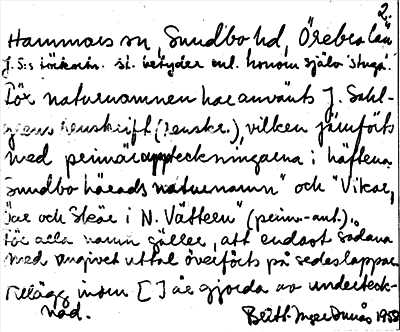 2.
Hammars sn, Sundbo hd, Örebro län
J. S:s inskrän. st. betyder enl. honom själv 'stuga'.
För naturnamnen har använts J. Sahl-
grens renskrift (renskr.), vilken jämförts
med primäruppteckningarna i häftena
Sundbo härads naturnamn" och "Vikar,
Öar och Skär i N. Vättern" (prim.-ant.).
För alla namn gäller, att endast sådana
med angivet uttal överförts på sedeslappar.
Tillägg inom [ ] är gjorda av underteck-
nad.
Britt-Inger 1953